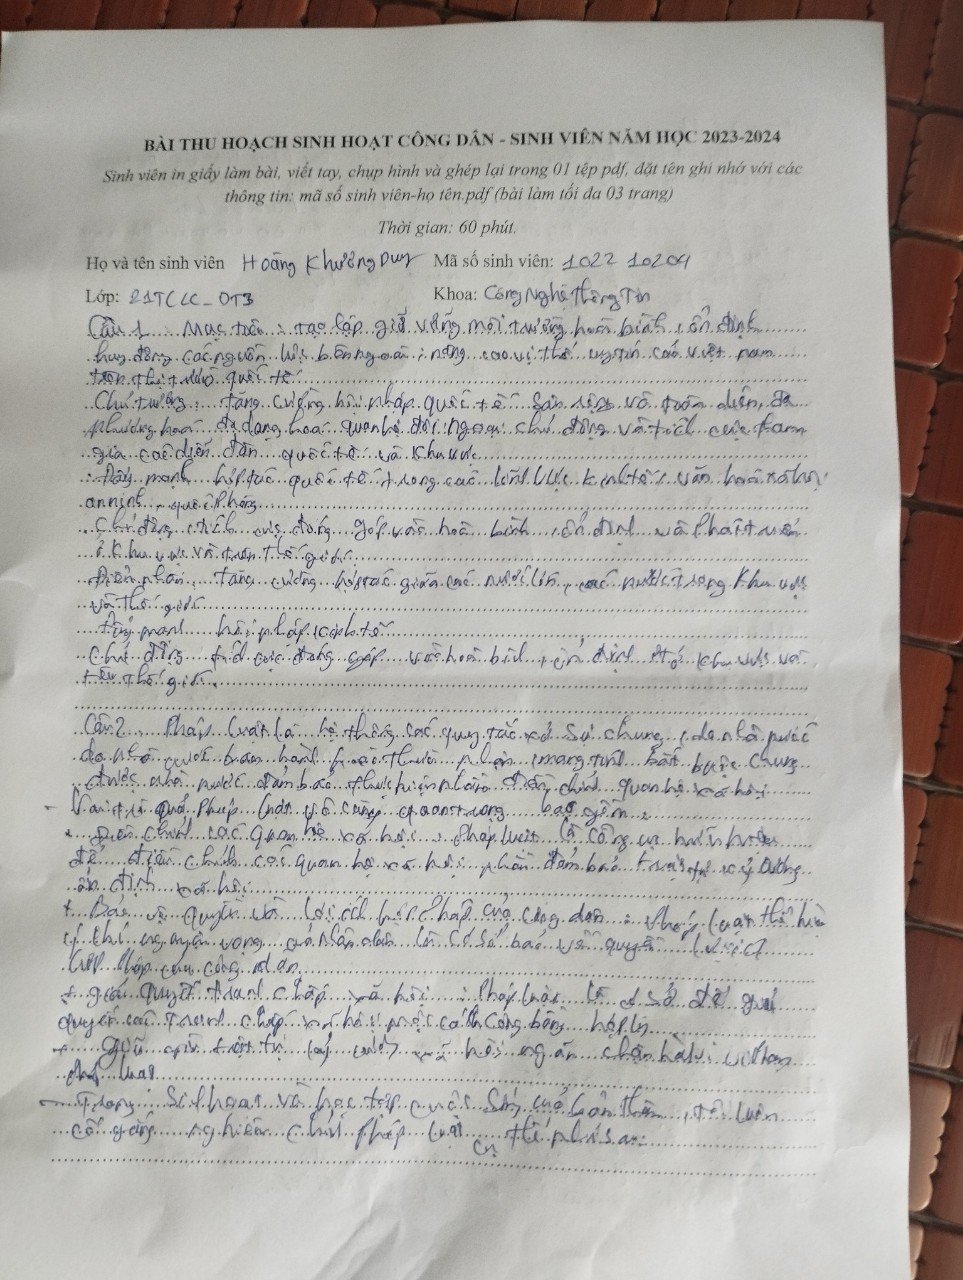 BÀI THU HOẠCH SINH HOẠT CÔNG DÂN - SINH VIÊN NĂM HỌC 2023-2024
Sinh viên in giấy làm bài, viết tay, chụp hình và ghép lại trong 01 tệp pdf, đặt tên ghi nhớ với các
thông tin: mã số sinh viên-họ tên.pdf (bài làm tối đa 03 trang)
Thời gian: 60 phút.
Họ và tên sinh viên Hoàng Khương Duy Mã số sinh viên: 1022 10204
Lớp: 21TCLC_DT3 Khoa: Công Nghệ Thông Tin
Câu 1 Mục tiêu: tạo lập giữ vững môi trường hoà bình, ổn định
huy động các nguồn lực bên ngoài nâng cao vị thế uy tín của việt nam
trên quốc tế
Chủ trương: tăng cường hội nhập quốc tế sâu rộng và toàn diện, đa
phương hoá đa dạng hoá quan hệ đối ngoại chủ động và tích cực tham
gia các diễn đàn quốc tế và khu vực
Đẩy mạnh hợp tác quốc tế trong các lĩnh vực kinh tế, văn hoá xã hội
an ninh quốc phòng
Chủ động tích cực đóng góp vào hoà bình ổn định và phát triển
ở khu vực và trên thế giới
tăng cường hợp tác giữa các nước lớn, các nước trong khu vực
và thế giới
Đẩy mạnh hội nhập kinh tế
Chủ động tích cực đóng góp vào hoà bình, ổn định khu vực và
trên thế giới
Câu 2 Pháp luật là hệ thống các quy tắc xử sự chung, do nhà nước
do nhà nước ban hành hoặc thừa nhận mang tính bắt buộc chung
được nhà nước đảm bảo thực hiện nhằm điều chỉnh quan hệ xã hội
Vai trò của Pháp luật vô cùng quan trọng bao gồm
điều chỉnh các quan hệ xã hội: Pháp luật là công cụ hữu hiệu
để điều chỉnh các quan hệ xã hội, phần đảm bảo trật tự kỷ cương
ổn định xã hội
+ Bảo vệ quyền và lợi ích hợp pháp của công dân: pháp luật thể hiện
ý chí nguyện vọng của nhân dân là cơ sở bảo vệ quyền lợi
hợp pháp của công dân
+ giải quyết tranh chấp xã hội: Pháp luật là cơ sở để giải
quyết các tranh chấp xã hội một cách công bằng hợp lý
+ giữ gìn trật tự kỷ cương xã hội ngăn chặn hành vi vi phạm
pháp luật
Trong sinh hoạt và học tập cuộc sống của bản thân, tôi luôn
cố gắng nghiêm chỉnh pháp luật cụ thể như sau: